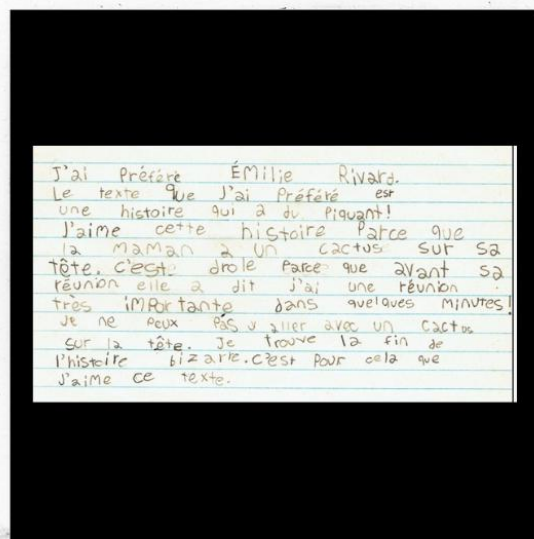 J'ai Préféré ÉMilie Rivard.
Le texte que J'ai Préféré est
une histoire qui a du Piquant!
J'aime cette histoire Parce que
la maman a un cactus sur sa
tête. c'est drole Parce que avant sa
réunion elle a dit j'ai une réunion
très iMPortante dans quelques minutes!
Je ne Peux Pas y aller avec un cactus
sur la tête. Je trouve la fin de
l'histoire bizarre. c'est Pour cela que
J'aime ce texte.